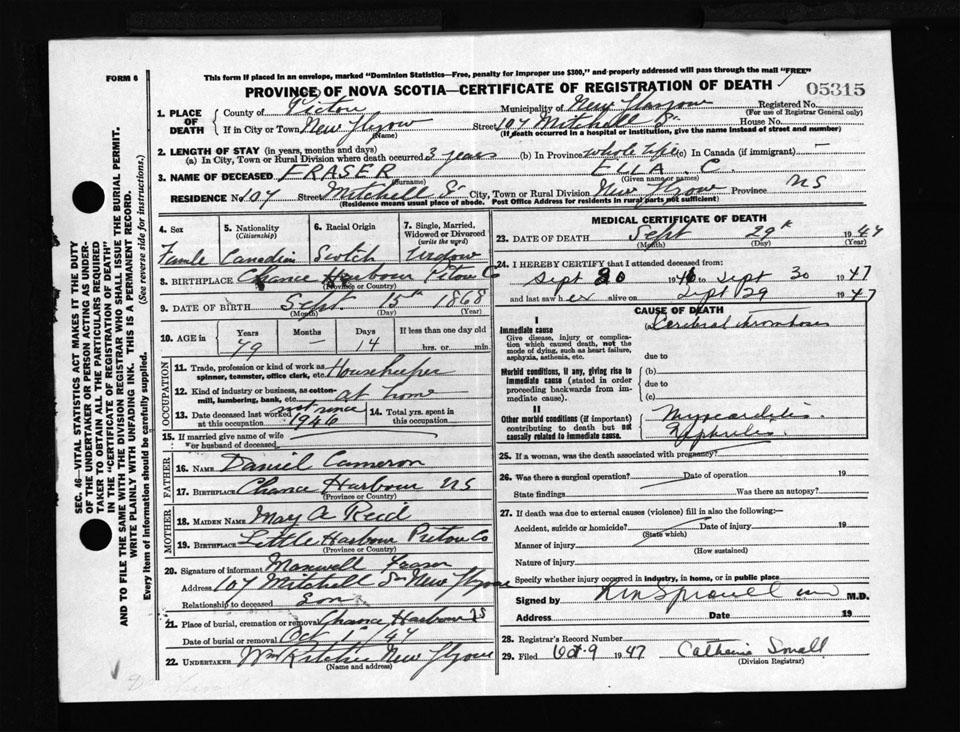 FORM 6
This form if placed in an envelope, marked "Dominion Statistics—Free, penalty for improper use $300," and properly addressed will pass through the mail "FREE"
PROVINCE OF NOVA SCOTIA—CERTIFICATE OF REGISTRATION OF DEATH
05315
1. PLACE OF DEATH
County of Pictou Municipality of New Glasgow Registered No.
(For use of Registrar General only)
If in City or Town New Glasgow Street 107 Mitchell St House No.
(Name) (If death occurred in a hospital or institution, give the name instead of street and number)
2. LENGTH OF STAY (in years, months and days)
(a) In City, Town or Rural Division where death occurred 3 years (b) In Province whole life (c) In Canada (if immigrant) —
3. NAME OF DECEASED FRASER ELLA . C.
(Surname) (Given name or names)
RESIDENCE No. 107 Street Mitchell St City, Town or Rural Division New Glasgow Province NS
(Residence means usual place of abode. Post Office Address for residents in rural parts not sufficient)
4. Sex
Female
5. Nationality (Citizenship)
Canadian
6. Racial Origin
Scotch
7. Single, Married, Widowed or Divorced (write the word)
Widow
8. BIRTHPLACE Chance Harbour Pictou C
(Province or County)
9. DATE OF BIRTH Sept. 15th 1868
(Month) (Day) (Year)
10. AGE in
Years Months Days If less than one day old
79 — 14 hrs. or min.
OCCUPATION
11. Trade, profession or kind of work as spinner, teamster, office clerk, etc. Housekeeper
12. Kind of industry or business, as cotton-mill, lumbering, bank, etc. at home
13. Date deceased last worked at this occupation not since 1946
14. Total yrs. spent in this occupation
15. If married give name of wife or husband of deceased
FATHER
16. NAME Daniel Cameron
17. BIRTHPLACE Chance Harbour NS
(Province or County)
MOTHER
18. MAIDEN NAME May A Reid
19. BIRTHPLACE Little Harbour Pictou Co
(Province or County)
20. Signature of informant Maxwell Fraser
Address 107 Mitchell St New Glasgow
Relationship to deceased Son
21. Place of burial, cremation or removal Chance Harbour NS
Date of burial or removal Oct 1st/47
22. UNDERTAKER Wm Ritchie New Glasgow
(Name and address)
MEDICAL CERTIFICATE OF DEATH
23. DATE OF DEATH Sept 29th 1947
(Month) (Day) (Year)
24. I HEREBY CERTIFY that I attended deceased from:
Sept 20 1946 to Sept 30 1947
and last saw her alive on Sept 29 1947
CAUSE OF DEATH
I
Immediate cause
Give disease, injury or complication which caused death, not the mode of dying, such as heart failure, asphyxia, asthenia, etc.
(a) Cerebral thrombosis
due to
Morbid conditions, if any, giving rise to immediate cause (stated in order proceeding backwards from immediate cause).
(b)
due to
(c)
II
Other morbid conditions (if important) contributing to death but not causally related to immediate cause.
Myocarditis.
Nephritis.
25. If a woman, was the death associated with pregnancy?
26. Was there a surgical operation? Date of operation 19
State findings Was there an autopsy?
27. If death was due to external causes (violence) fill in also the following:—
Accident, suicide or homicide? Date of injury 19
(State which)
Manner of injury
(How sustained)
Nature of injury
Specify whether injury occurred in industry, in home, or in public place
Signed by M.D.
Address Date 19
28. Registrar's Record Number
29. Filed Oct 9 1947 Catherine Small
(Division Registrar)
SEC. 46—VITAL STATISTICS ACT MAKES IT THE DUTY
OF THE UNDERTAKER OR PERSON ACTING AS UNDERTAKER TO OBTAIN ALL THE PARTICULARS REQUIRED
IN THE "CERTIFICATE OF REGISTRATION OF DEATH"
AND TO FILE THE SAME WITH THE DIVISION REGISTRAR WHO SHALL ISSUE THE BURIAL PERMIT.
WRITE PLAINLY WITH UNFADING INK. THIS IS A PERMANENT RECORD.
Every item of information should be carefully supplied. (See reverse side for instructions.)